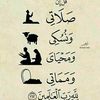 قل إن
صلاتي
ونسكي
ومحياي
ومماتي
لله رب العالمين